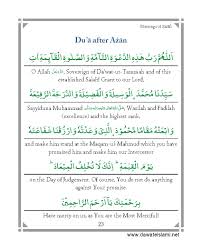 Du'ā after Ażān
اَللّٰهُمَّ رَبَّ هٰذِهِ الدَّعْوَةِ التَّآمَّةِ وَالصَّلٰوةِ الْقَآئِمَةِ اٰتِ
O Allah Sovereign of Da'wat-ut-Taammah and of this
established Salah! Grant to our lord,
سَيِّدَنَا مُحَمَّدَنِ الْوَسِيْلَةَ وَالْفَضِيْلَةَ وَالدَّرَجَةَ الرَّفِيْعَةَ
Sayyiduna Muhammad Wasilah and Fadilah
(excellence) and the highest rank,
وَابْعَثْهُ مَقَامًا مَّحْمُوْدَنِ الَّذِيْ وَعَدْتَّهٗ وَارْزُقْنَا شَفَاعَتَهٗ
and make him stand at the Maqam-ul-Mahmud which you have
promised him and make him our Intercessor
يَوْمَ الْقِيٰمَةِ ؕ اِنَّكَ لَا تُخْلِفُ الْمِيْعَادَ ؕ
on the Day of Judgement. Of course, You do not do anything
against Your promise.
بِرَحْمَتِكَ يَا اَرْحَمَ الرَّاحِمِيْنَ
Have mercy on us as You are the Most Merciful!
23
www.dawateislami.net